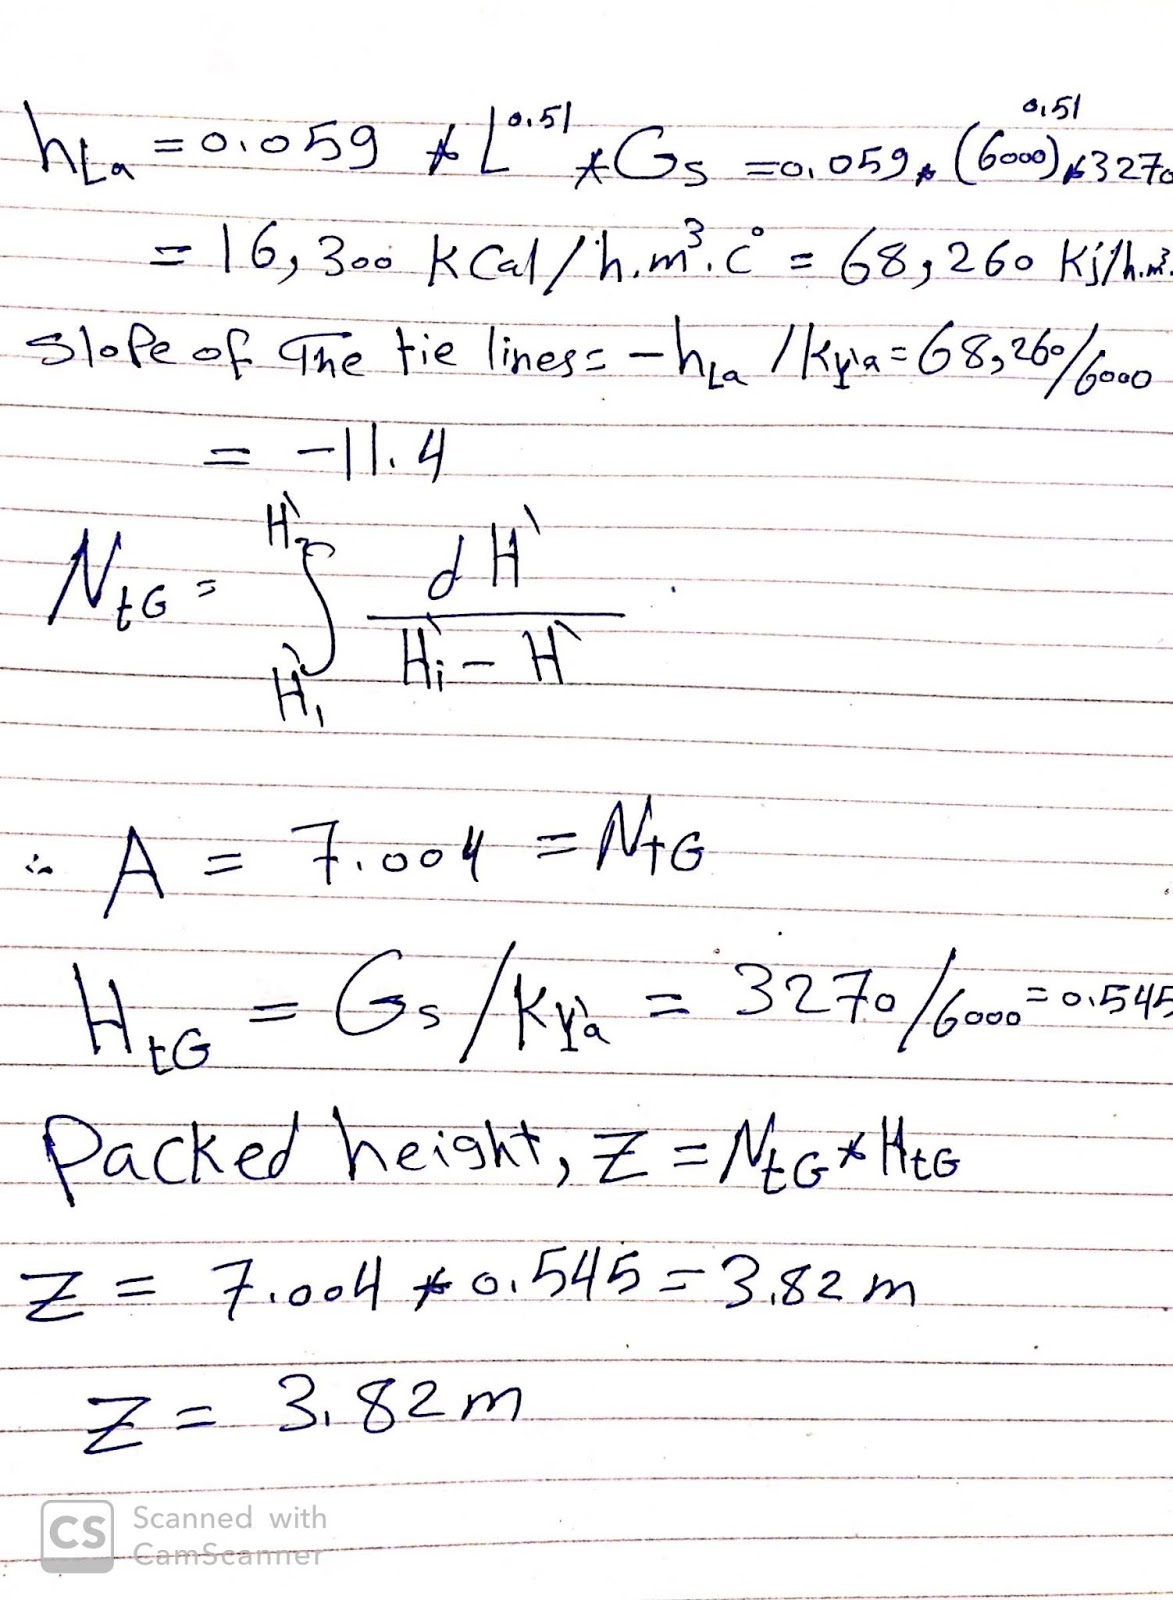 hLa = 0.059 * L^0.51 * Gs = 0.059 * (6000)^0.51 * 3270
= 16,300 KCal/h.m³.c° = 68,260 Kj/h.m³.
Slope of The tie lines = -hLa / Ky'a = 68,260/6000
= -11.4
NtG = ∫ H'1 H'2 dH' / H'i - H'
∴ A = 7.004 = NtG
HtG = Gs/Ky'a = 3270/6000 = 0.545
Packed height, Z = NtG * HtG
Z = 7.004 * 0.545 = 3.82 m
Z = 3.82 m
CS Scanned with
CamScanner